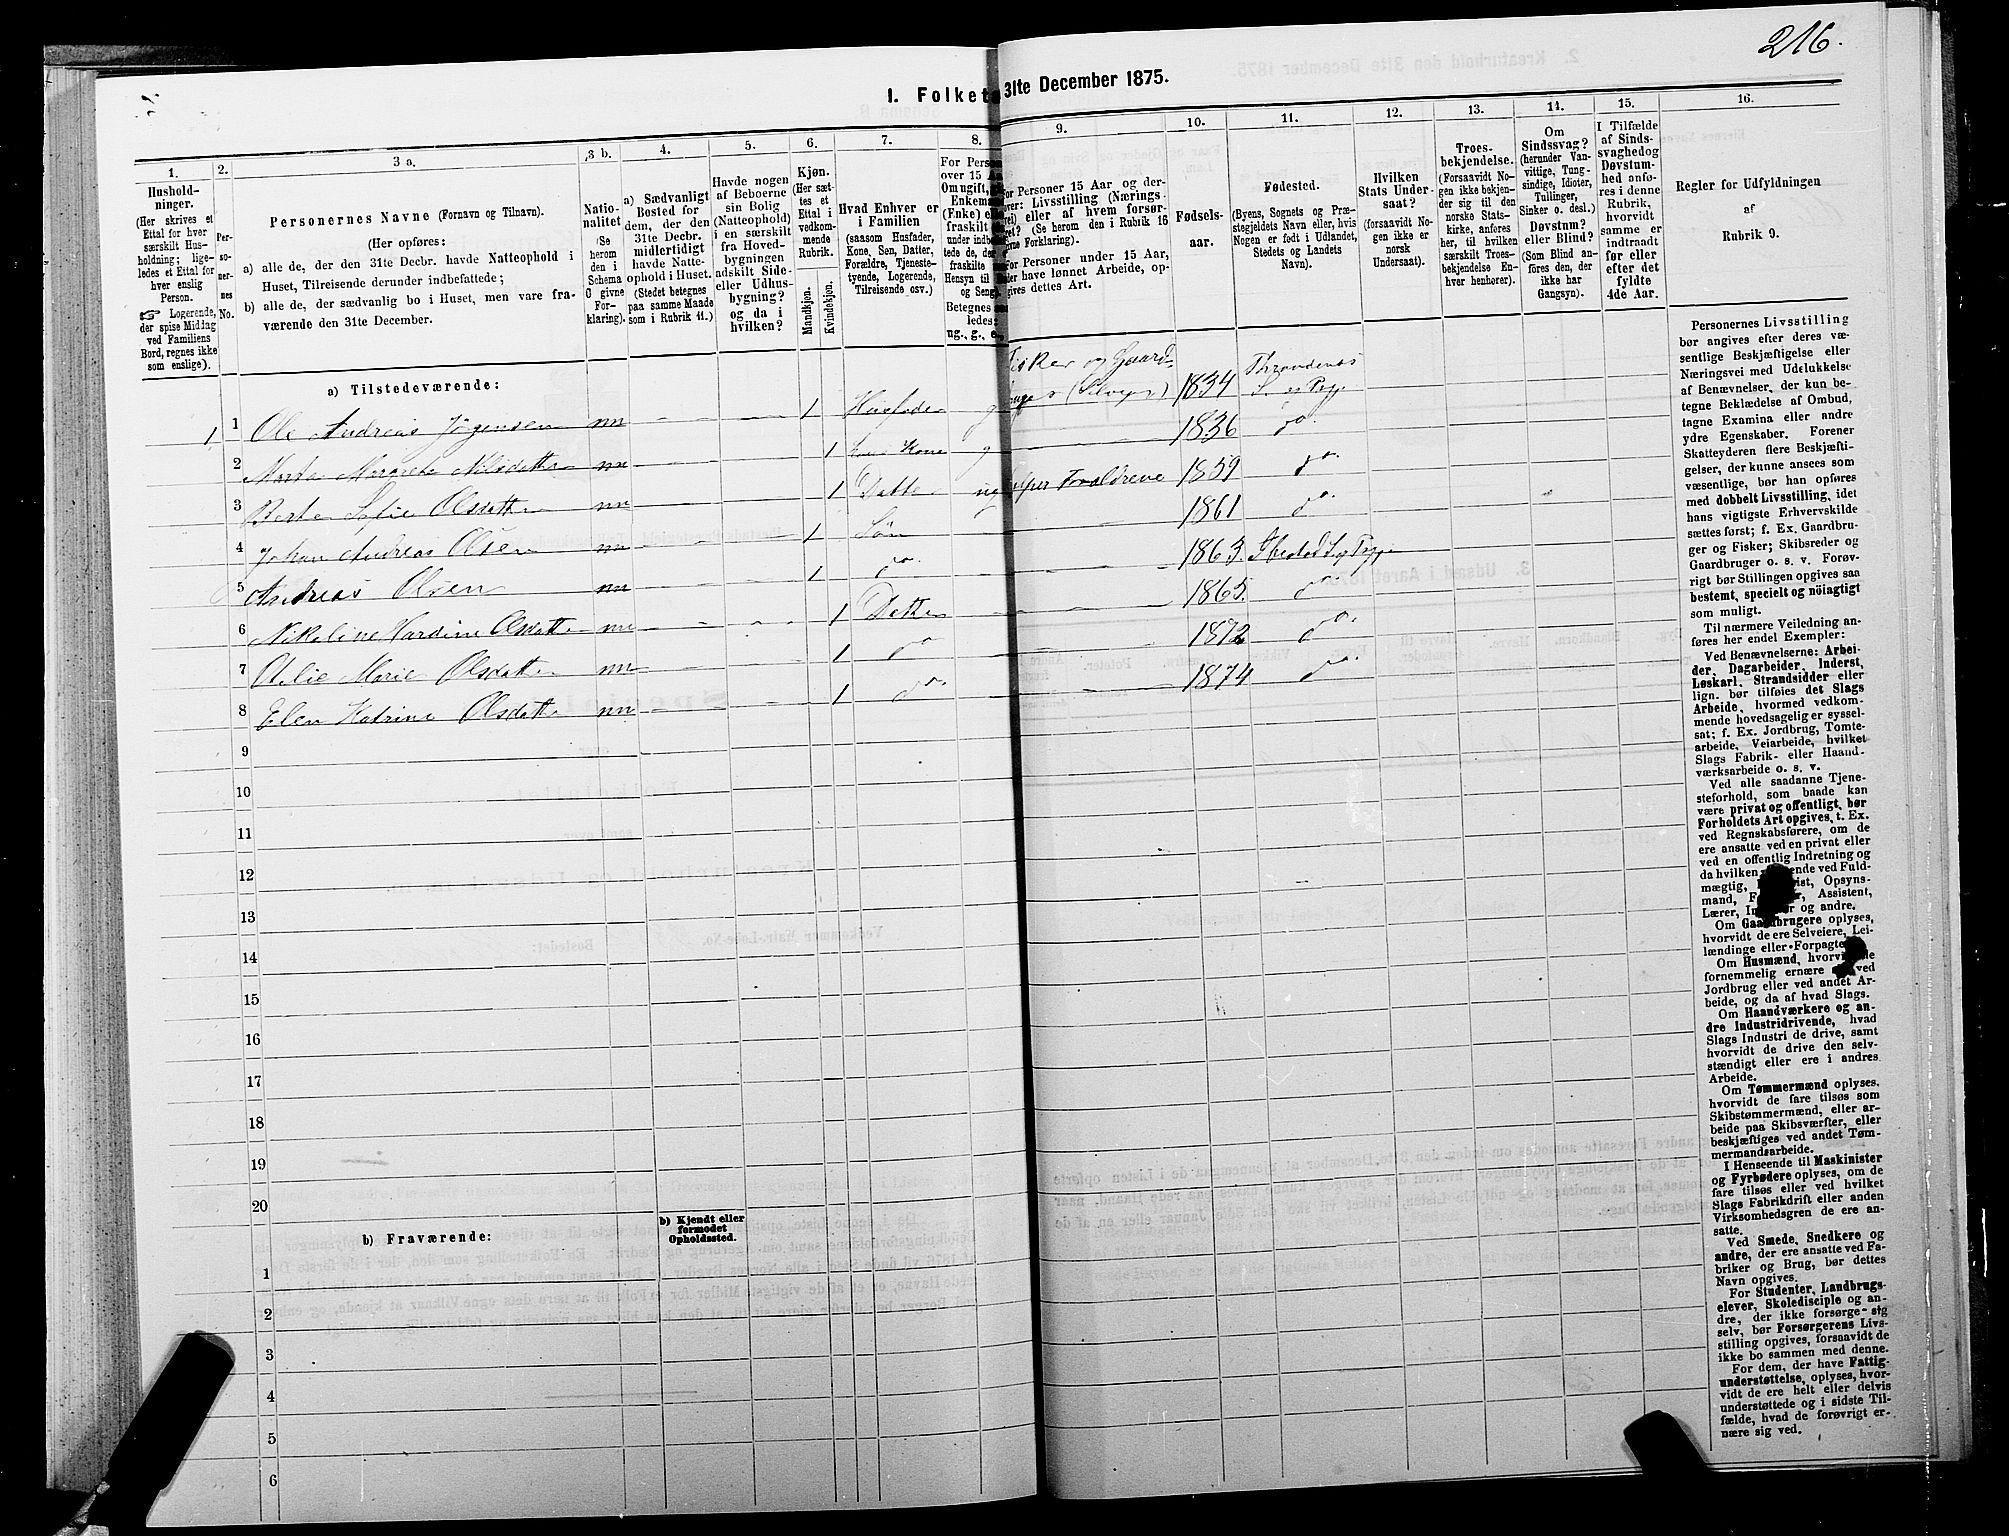 216.
I. Folket 31te December 1875.
1. 2. 3 a. 3 b. 4. 5. 6. 7. 8. 9. 10. 11. 12. 13. 14. 15. 16.
Hushold-
ninger.
(Her skrives et
Ettal for hver
særskilt Hus-
holdning; lige-
ledes et Ettal for
hver enslig
Person.
Logerende,
der spise Middag
ved Familiens
Bord, regnes ikke
som enslige).
Per-
so-
ner-
nes
No.
Personernes Navne (Fornavn og Tilnavn).
(Her opføres:
a) alle de, der den 31te Decbr. havde Natteophold i
Huset, Tilreisende derunder indbefattede;
b) alle de, der sædvanlig bo i Huset, men vare fra-
værende den 31te December.
Natio-
nalitet
(Se
herom
den i
Schema
C givne
For-
klaring).
a) Sædvanligt
Bosted for
dem, der den
31te Decbr.
midlertidigt
havde Natte-
ophold i Huset.
(Stedet betegnes
paa samme Maade
som i Rubrik 11.)
Havde nogen
af Beboerne
sin Bolig
(Natteophold)
i en særskilt
fra Hoved-
bygningen
adskilt Side-
eller Udhus-
bygning?
og da i
hvilken?
Kjøn.
(Her sæt-
tes et
Ettal i
vedkom-
mende
Rubrik.
Mandkjøn.
Kvindekjøn.
Hvad Enhver er
i Familien
(saasom Husfader,
Kone, Søn, Datter,
Forældre, Tjeneste-
tyende, Logerende,
Tilreisende osv.)
For Person
over 15 Aa
Om ugift,
Enkema
(Enke) e
fraskilt
under indbe
tede de,
fraskilte
Hensyn til
og Seng
Betegnes
ledes:
ug., g., e.,
For Personer 15 Aar og der-
over: Livsstilling (Nærings-
vei) eller af hvem forsør-
get? (Se herom den i Rubrik 16
givne Forklaring).
For Personer under 15 Aar,
der have lønnet Arbeide, op-
gives dettes Art.
Fødsels-
aar.
Fødested.
(Byens, Sognets og Præ-
stegjeldets Navn eller, hvis
Nogen er født i Udlandet,
Stedets og Landets
Navn).
Hvilken
Stats Under-
saat?
(forsaavidt No-
gen ikke er
norsk
Undersaat).
Troes-
bekjendelse.
(Forsaavidt No-
gen ikke bekjen-
der sig til den
norske Stats-
kirke, anføres
her, til hvilken
særskilt Troes-
bekjendelse En-
hver henhører).
Om
Sindssvag?
(herunder Van-
vittige, Tung-
sindige, Idioter,
Tullinger,
Sinker o. desl.)
Døvstum?
eller Blind?
(Som Blind an-
føres den, der
ikke har
Gangsyn).
I Tilfælde
af Sinds-
svaghedog
Døvstum-
hed anfø-
res i denne
Rubrik,
hvorvidt
samme er
indtraadt
før eller
efter det
fyldte
4de Aar.
Regler for Udfyldningen
af
Rubrik 9.
a) Tilstedeværende:
1 1 Ole Andreas Jörgensen nn 1 Husfader g Fisker og Gaard-
bruger (Selveger) 1834 Throndenæs
S og Prgj
2 Marta Margrete Nilsdatter nn 1 hans Kone g 1836 do.
3 Berte Sofie Olsdatter nn 1 Datter ug hjælper Forældrene 1859 do.
4 Johan Andreas Olsen nn 1 Sön 1861 do.
5 Andreas Olsen nn 1 do. 1863. Ibestad S og Prgj
6 Nikoline Hardine Olsdatter nn 1 Datter 1865. do.
7 Otelie Marie Olsdatter nn 1 do 1872 do.
8 Elen Katrine Olsdatter nn 1 do. 1874 do.
9
10
11
12
13
14
15
16
17
18
19
20
b) Fraværende:
b) Kjendt eller
formodet
Opholdssted.
1
2
3
4
5
6
Personernes Livsstilling
bør angives efter deres væ-
sentlige Beskjæftigelse eller
Næringsvei med Udelukkelse
af Benævnelser, der kun be-
tegne Beklædelse af Ombud,
tagne Examina eller andre
ydre Egenskaber. Forener
Skatteyderen flere Beskjæfti-
gelser, der kunne ansees som
væsentlige, bør han opføres
med dobbelt Livsstilling, idet
hans vigtigste Erhvervskilde
sættes først; f. Ex. Gaardbru-
ger og Fisker; Skibsreder og
Gaardbruger o. s. v. Forøv-
rigt bør Stillingen opgives saa
bestemt, specielt og nöiagtigt
som muligt.
Til nærmere Veiledning an-
føres her endel Exempler:
Ved Benævnelserne: Arbei-
der, Dagarbeider, Inderst,
Løskarl, Strandsidder eller
lign. bør tilføies det Slags
Arbeide, hvormed vedkom-
mende hovedsagelig er syssel-
sat; f. Ex. Jordbrug, Tomte-
arbeide, Veiarbeide, hvilket
Slags Fabrik- eller Haand-
værksarbeide o. s. v.
Ved alle saadanne Tjene-
steforhold, som baade kan
være privat og offentligt, bør
Forholdets Art opgives, t. Ex.
ved Regnskabsførere, om de
ere ansatte ved en privat eller
ved en offentlig Indretning og
da hvilken; ende ved Fuld-
mægtig, ist, Opsyns-
mand, F , Assistent,
Lærer, In r og andre.
Om Gaardbrugere oplyses,
hvorvidt de ere Selveiere, Lei-
lændinge eller Forpagte
Om Husmænd, hvorvidt de
fornemmelig ernære ved
Jordbrug eller ved andet Ar-
beide, og da af hvad Slags.
Om Haandværkere og an-
dre Industridrivende, hvad
Slags Industri de drive, samt
hvorvidt de drive den selv-
stændigt eller ere i andres
Arbeide.
Om Tømmermænd oplyses,
hvorvidt de fare tilsøs som
Skibstømmermænd, eller ar-
beide paa Skibsværfter, eller
beskjæftiges ved andet Tøm-
mermandsarbeide.
I Henseende til Maskinister
og Fyrbødere oplyses, om de
fare tilsøs eller ved hvilket
Slags Fabrikdrift eller anden
Virksomhedsgren de ere an-
satte.
Ved Smede, Snedkere og
andre, der ere ansatte ved Fa-
briker og Brug, bør dettes
Navn opgives.
For Studenter, Landbrugs-
elever, Skoledisciple og an-
dre, der ikke forsørge sig
selv, bør Forsørgerens Livs-
stilling opgives, forsaavidt de
ikke bo sammen med denne.
For dem, der have Fattig-
understøttelse, oplyses, hvor-
vidt de ere helt eller delvis
understøttede og i sidste Til-
fælde, hvad de forøvrigt er-
nære sig ved.